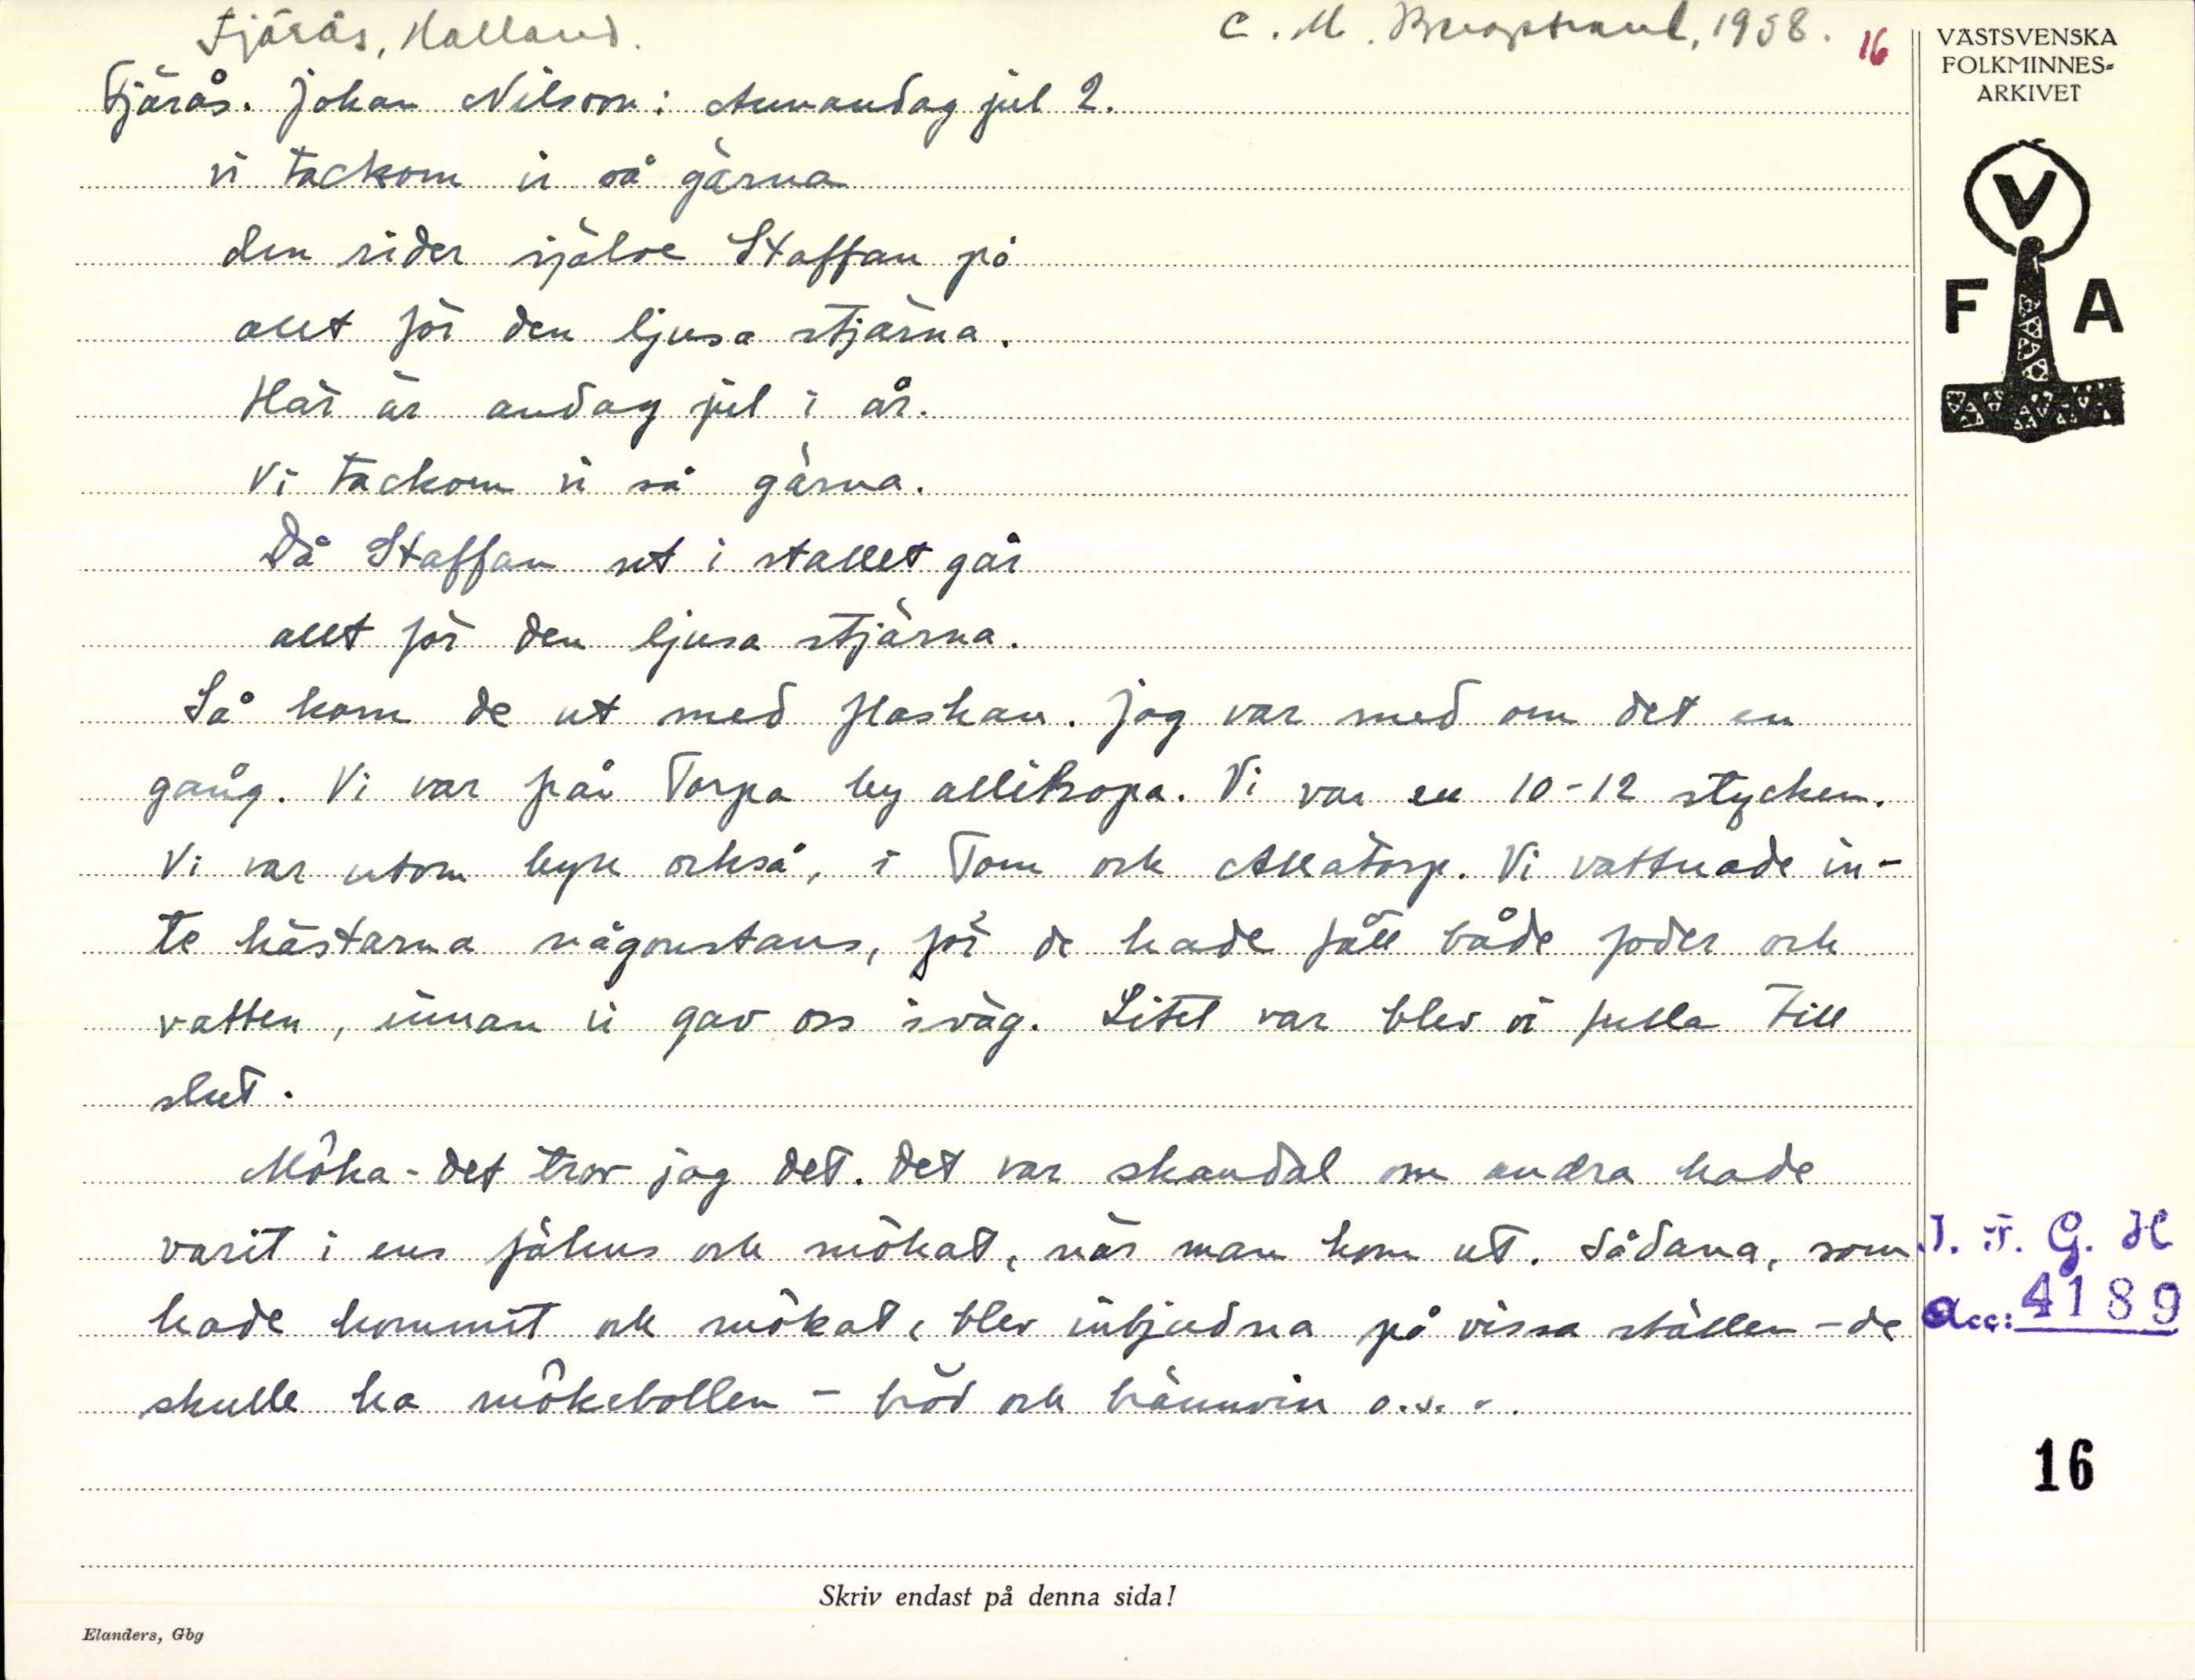 Fjärås, Halland.
C. M. Bergstrand, 1958. 16
VÄSTSVENSKA
FOLKMINNES-
ARKIVET
V
F A
Fjärås. Johan Nilsson: Annandag jul 2.
vi tackom vi så gärna
den rider själve Staffan på
allt för den ljusa stjärna.
Här är andag jul i år.
Vi tackom vi så gärna.
Då Staffan ut i stallet går
allt för den ljusa stjärna.
Så kom de ut med flaskan. Jag var med om det en
gång. Vi var från Torpa by allihopa. Vi var en 10-12 stycken.
Vi var utom byn också, i Tom och Allatorp. Vi vattnade in-
te hästarna någonstans, för de hade fått både foder och
vatten, innan vi gav oss iväg. Litet var blev vi fulla till
slut.
Möka - det tror jag det. Det var skandal om andra hade
varit i ens fähus och mökat, när man kom ut. Sådana, som
hade kommit och mökat, blev inbjudna på vissa ställen - de
skulle ha mökebollen - bröd och brännvin o.s.v.
I. F. G. H
Acc: 4189
16
Skriv endast på denna sida!
Elanders, Gbg